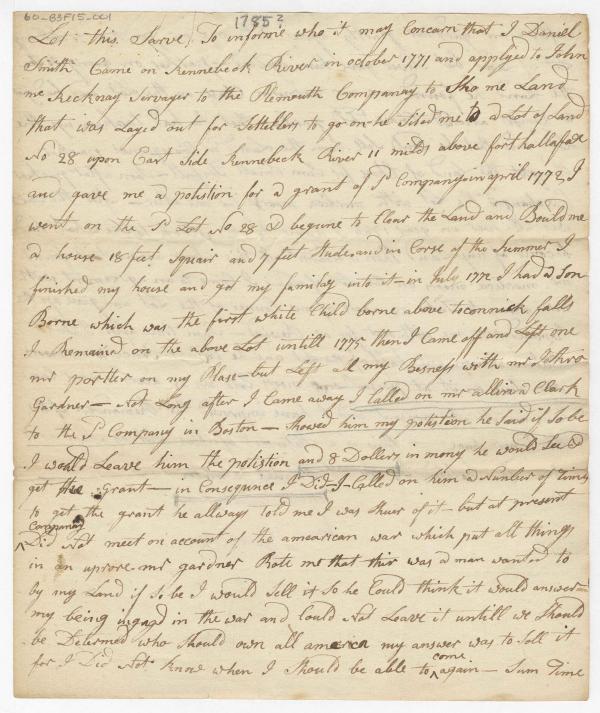 60-B3F15-001
1785?
Let this Sarve To informe who it may Concarn that I Daniel
Smith Came on Kennebeck River in october 1771 and applyed to John
mc Kecknay Servayer to the Plemouth Companay to Sho me Land
that was Layed out for Settellers to go on he Sited me to a Lot of Land
No 28 upon East Side Kennebeck River 11 milds above fort hallafax
and gave me a potistion for a grant of Sd Company in april 1772 I
went on the Sd Lot No 28 & begune to Clear the Land and Bould me
a house 18 feet Squair and 7 feet Stude and in Corse of the Summer I
finished my house and got my familey into it – in July 1772 I had a Son
Borne which was the first white Child borne above toconnick falls
I Remained on the above Lot untill 1775 then I Came off and Left one
mr portter on my Plase – but Left all my Besness with mr
Gardner – Not Long after I Came away I Called on mr allin a Clark
to the Sd Company in Boston – Showed him my potistion he Said if So be
I would Leave him the polistion and 8 Dollers in mony he would See &
get the Grant – in Consequnce I Did I Called on him a Number of Times
to get the grant he allways told me I was Shuer of it – but at present
Companay
^ Did Not meet on account of the amearican war which put all things
in an uprore mr gardner Rote me that thir was a man wanted to
by my Land if so be I would Sell it So he Could think it would answer –
my being ingaged in the war and Could Not Leave it untill we Should
be Deturmed who Should own all america my answer was to Sell it
for I Did Not know when I Should be able to ^ come again – Sum Time